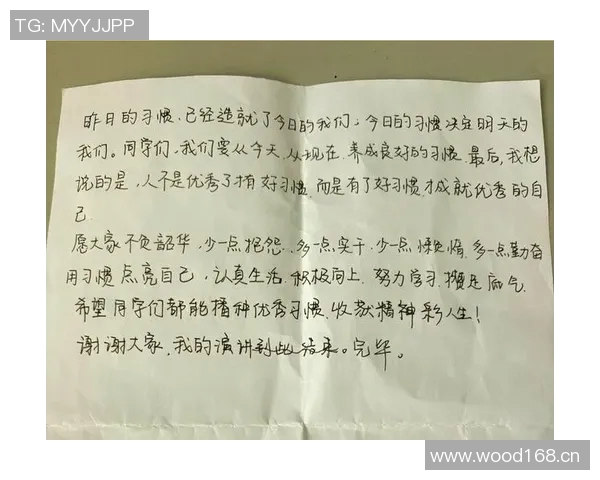 TG: MYYJJPP
昨日的习惯,已经造就了今日的我们;今日的习惯决定明天的
我们。同学们,我们要从今天,从现在,养成良好的习惯。最后,我想
说的是,人不是优秀了才有好习惯,而是有了好习惯,才成就优秀的自
己.
愿大家不负韶华,少一点抱怨、多一点实干,少一点懒惰,多一点勤奋
用习惯点亮自己,认真生活,积极向上,努力学习,攒足底气.
希望同学们都能播种优秀习惯,收获精神彩人生!
谢谢大家,我的演讲到此结束。完毕。
www.wood168.cn